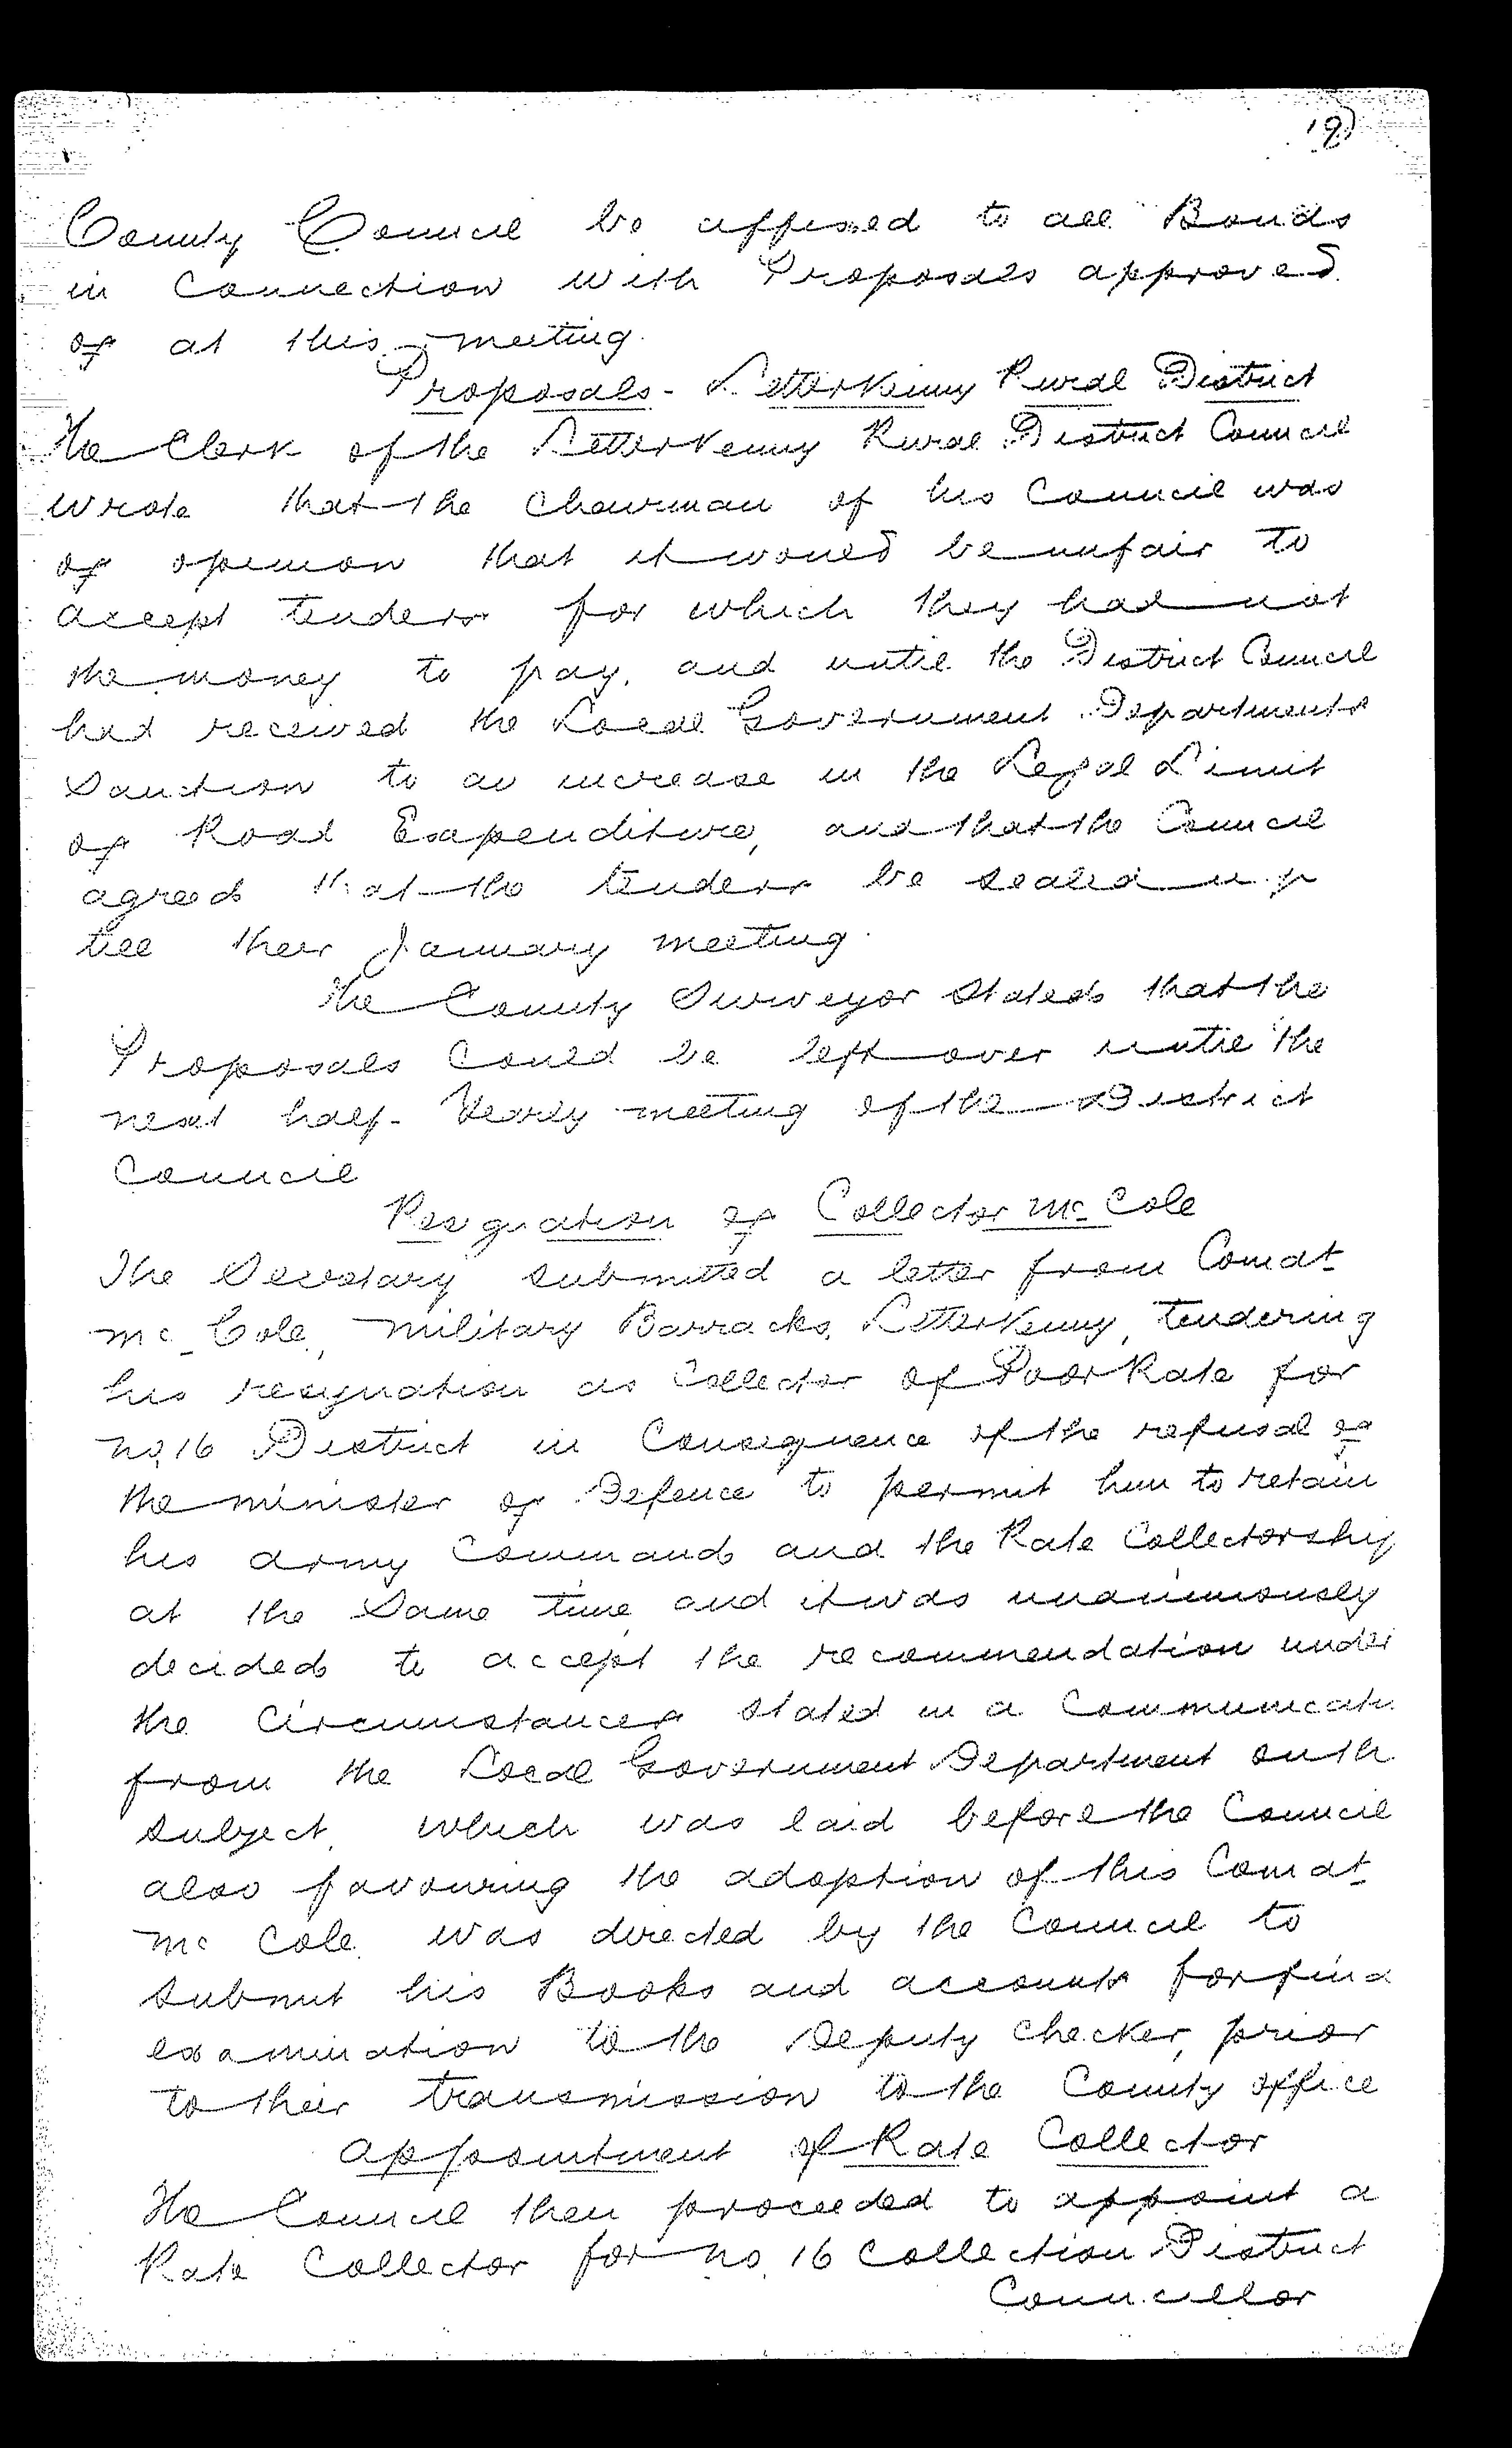 19)
County Council be affixed to all Bonds
in Connection with Proposals approved
of at this meeting.
Proposals - Letterkenny Rural District
The Clerk of the Letterkenny Rural District Council
wrote that the Chairman of his Council was
of opinion that it would be unfair to
accept tenders for which they had not
the money to pay, and until the District Council
had received the Local Government Departments
Sanction to an increase in the Legal Limit
of Road Expenditure, and that the Council
agreed that the tenders be sealed up
till their January meeting.
The County Surveyor stated that the
Proposals could be left over until the
next half-Yearly meeting of the District
Council
Resignation of Collector McCole
The Secretary submitted a letter from Comdt
McCole, Military Barracks, Letterkenny, tendering
his resignation as Collector of Poor Rate for
No. 16 District in Consequence of the refusal of
the minister of Defence to permit him to retain
his army Command and the Rate Collectorship
at the Same time and it was unanimously
decided to accept the recommendation under
the Circumstances stated in a Communicatn
from the Local Government Department on th
subject, which was laid before the Council
also favouring the adoption of this Comdt
McCole was directed by the Council to
submit his Books and accounts for fina
examination to the Deputy Checker, prior
to their transmission to the County office
appointment of Rate Collector
The Council then proceeded to appoint a
Rate Collector for No. 16 Collection District
Councillor